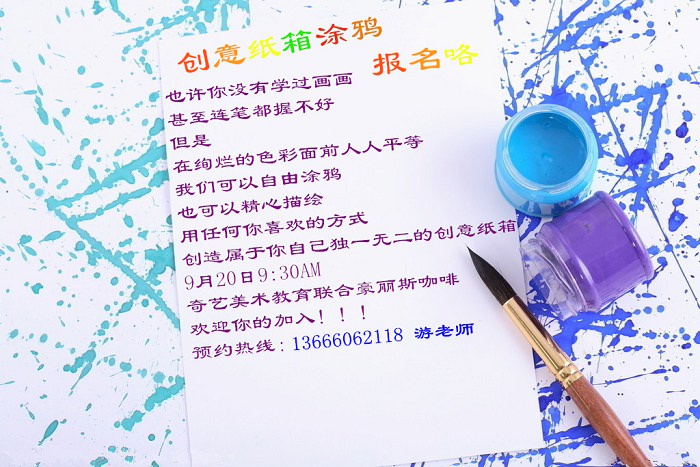 创意纸箱涂鸦
报名咯
也许你没有学过画画
甚至连笔都握不好
但是
在绚烂的色彩面前人人平等
我们可以自由涂鸦
也可以精心描绘
用任何你喜欢的方式
创造属于你自己独一无二的创意纸箱
9月20日9:30AM
奇艺美术教育联合豪丽斯咖啡
欢迎你的加入！！！
预约热线：13666062118 游老师